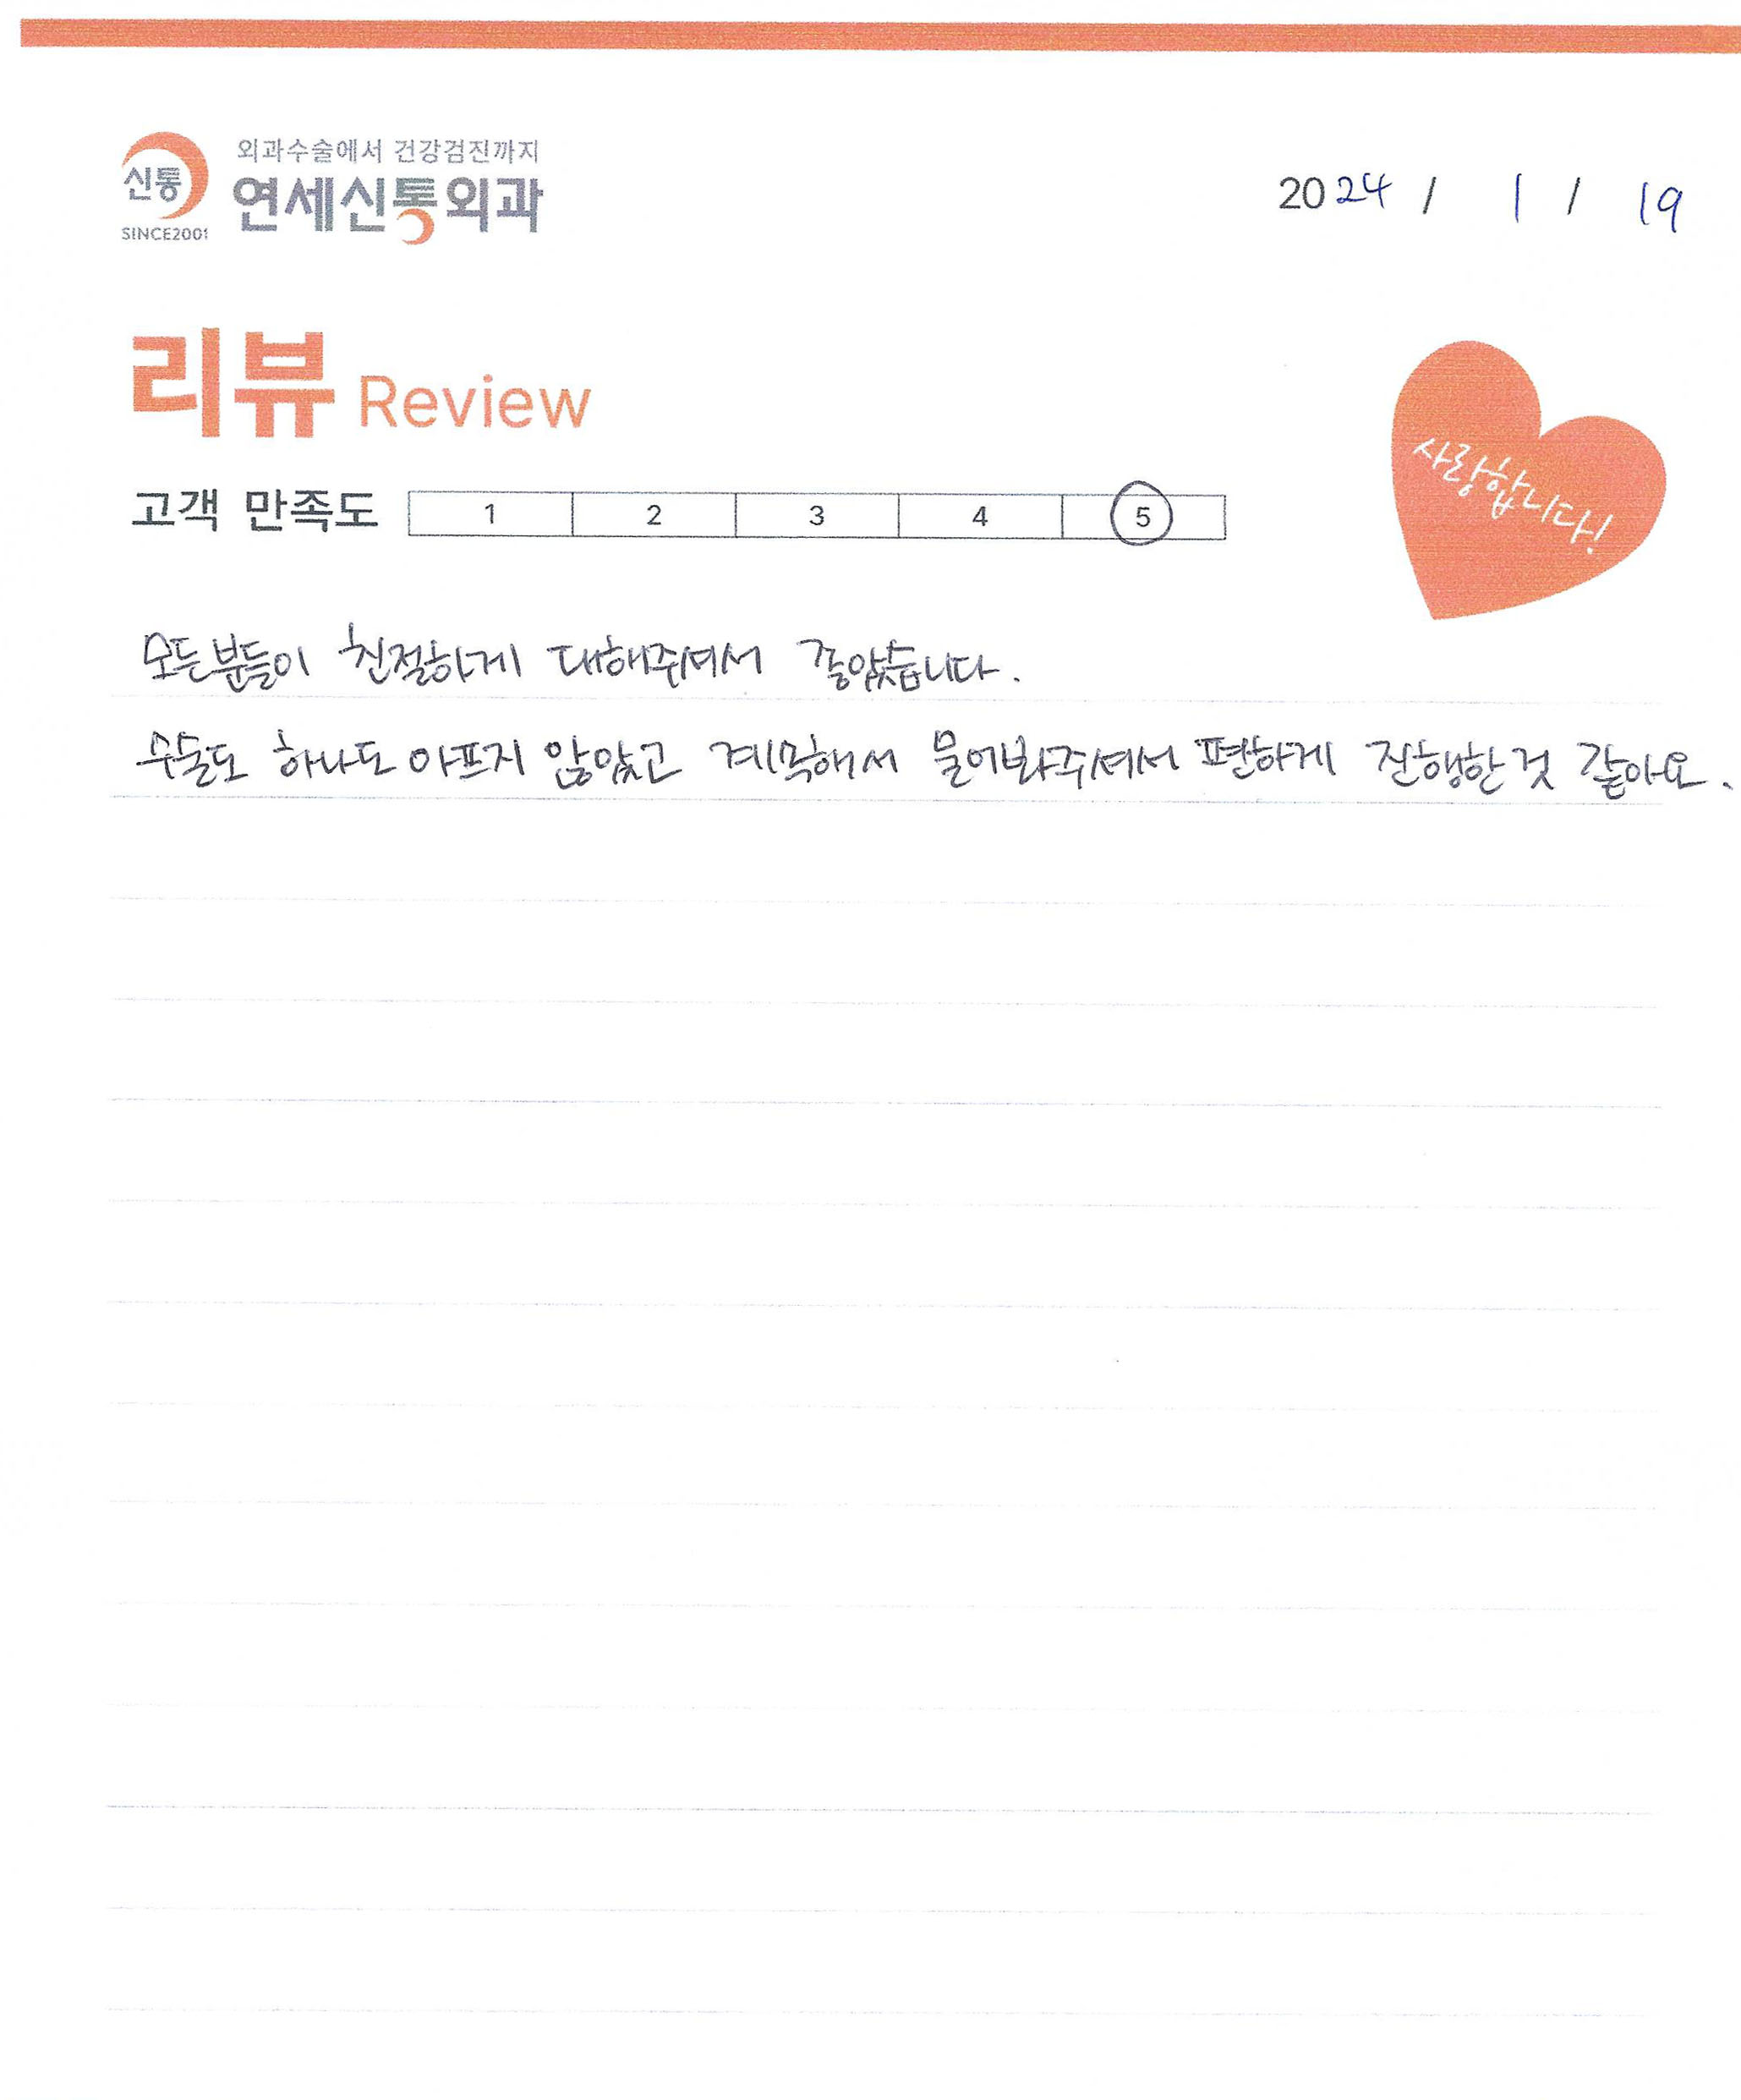 외과수술에서 건강검진까지
신통
연세신통외과
SINCE2001
2024 / 1 / 19
리뷰 Review
사랑합니다!
고객 만족도 1 2 3 4 5
모든분들이 친절하게 대해주셔서 좋았습니다.
수술도 하나도 아프지 않았고 계막해서 물어봐주셔서 편하게 진행한것 같아요.